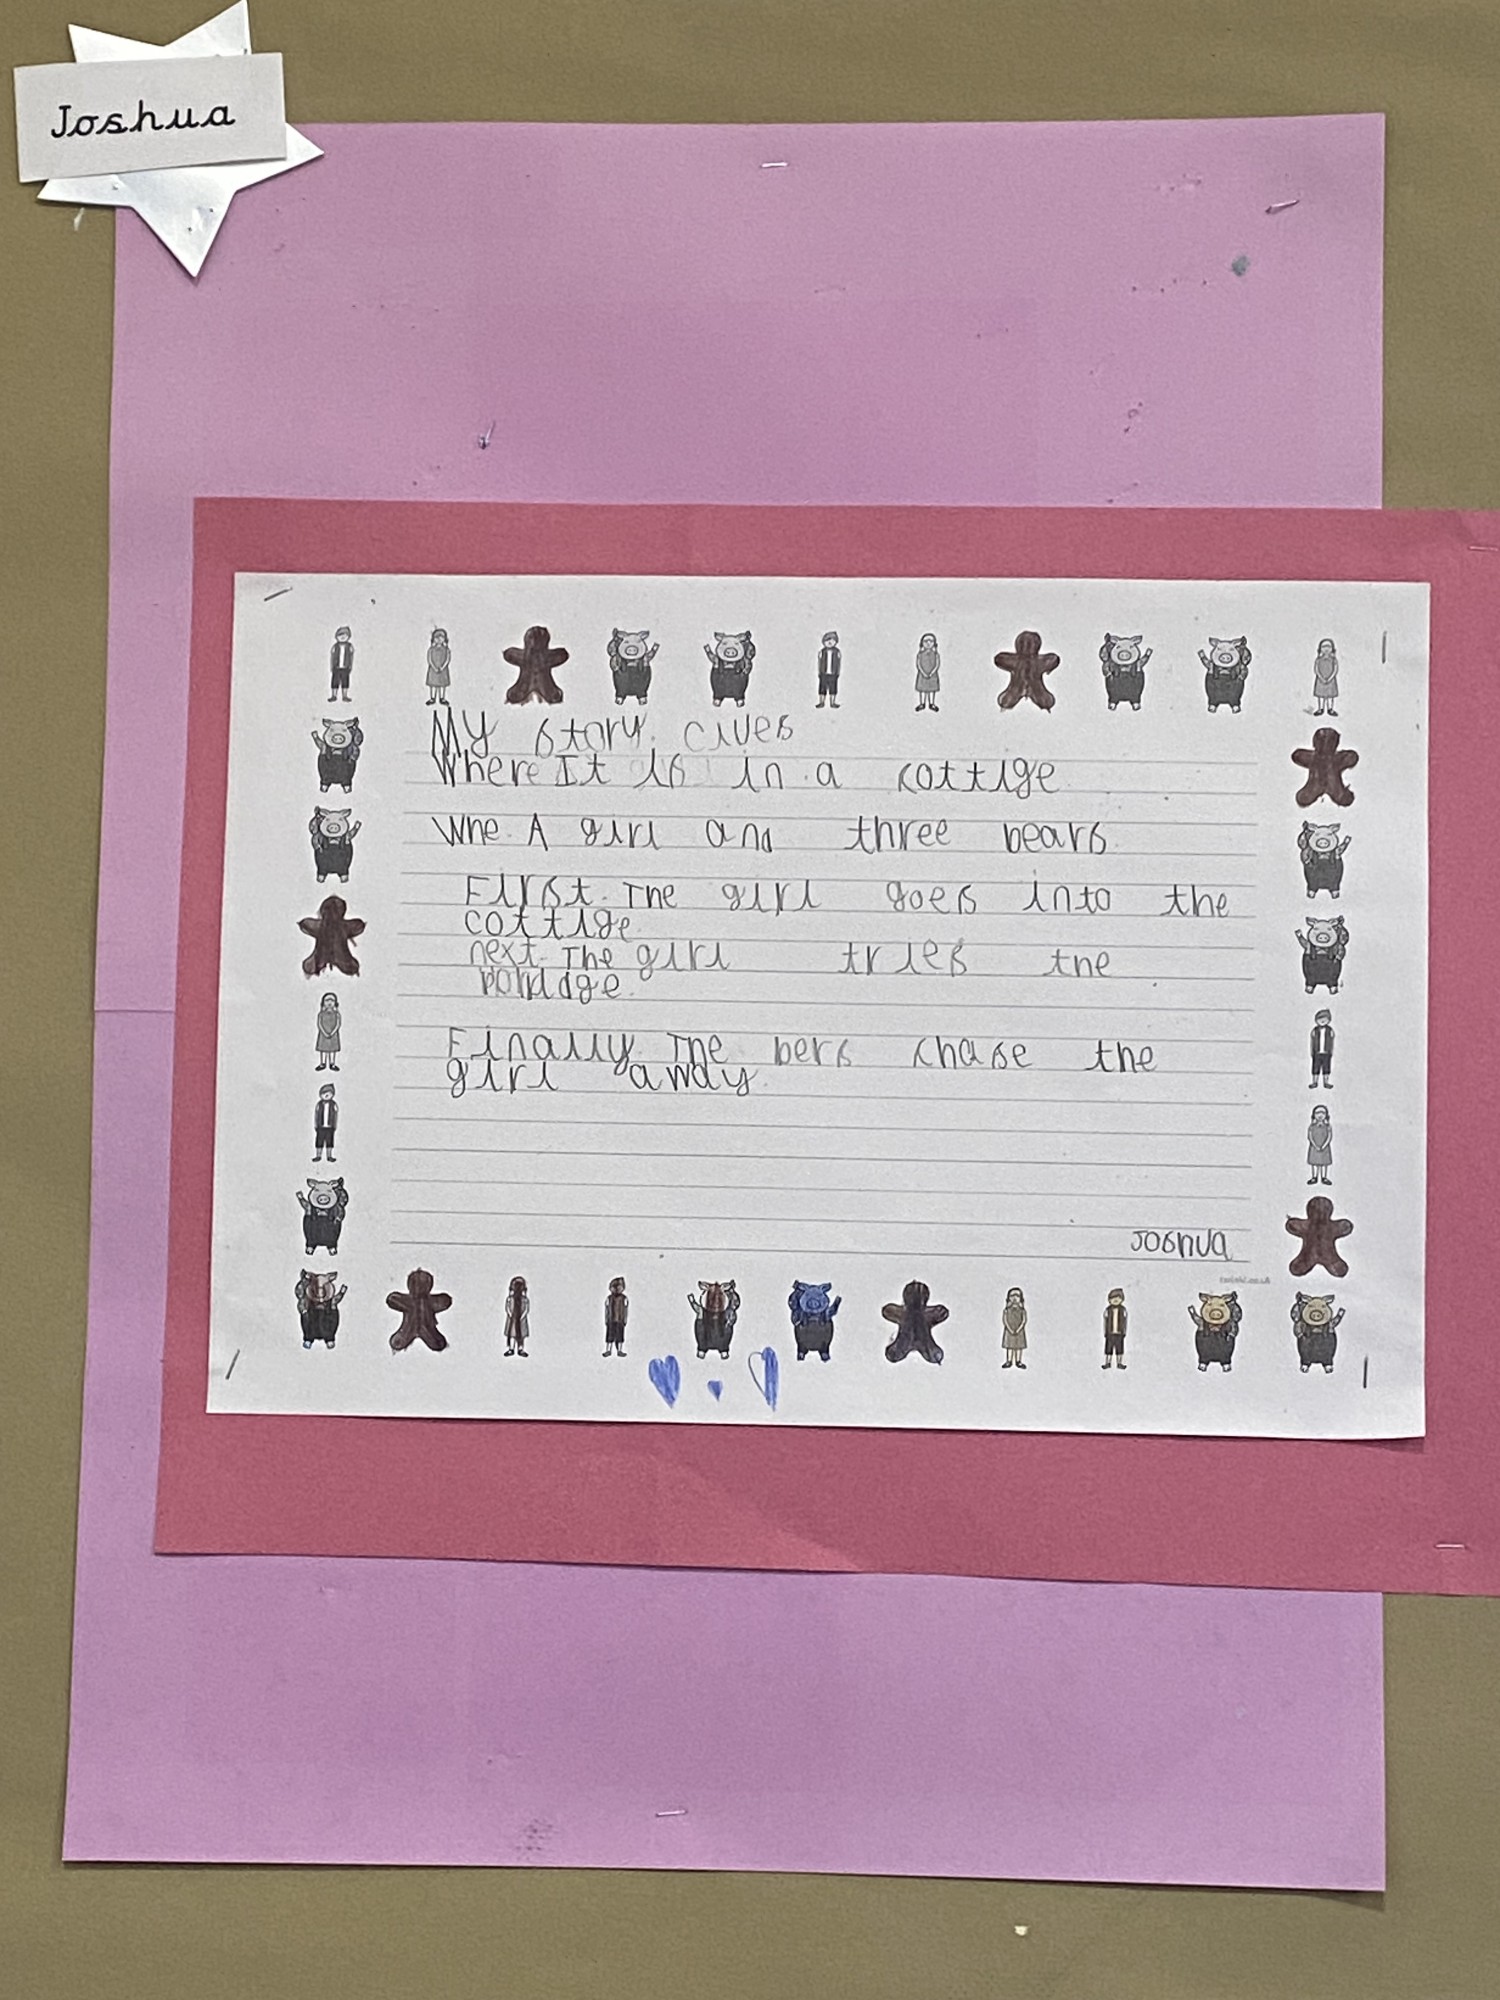 Joshua
My story clues
Where It is in a cottige
Whe A girl and three bears.
First. The girl goes into the
cottige.
next. The girl tries the
poridge.
Finally. The bers chase the
girl away.
Joshua